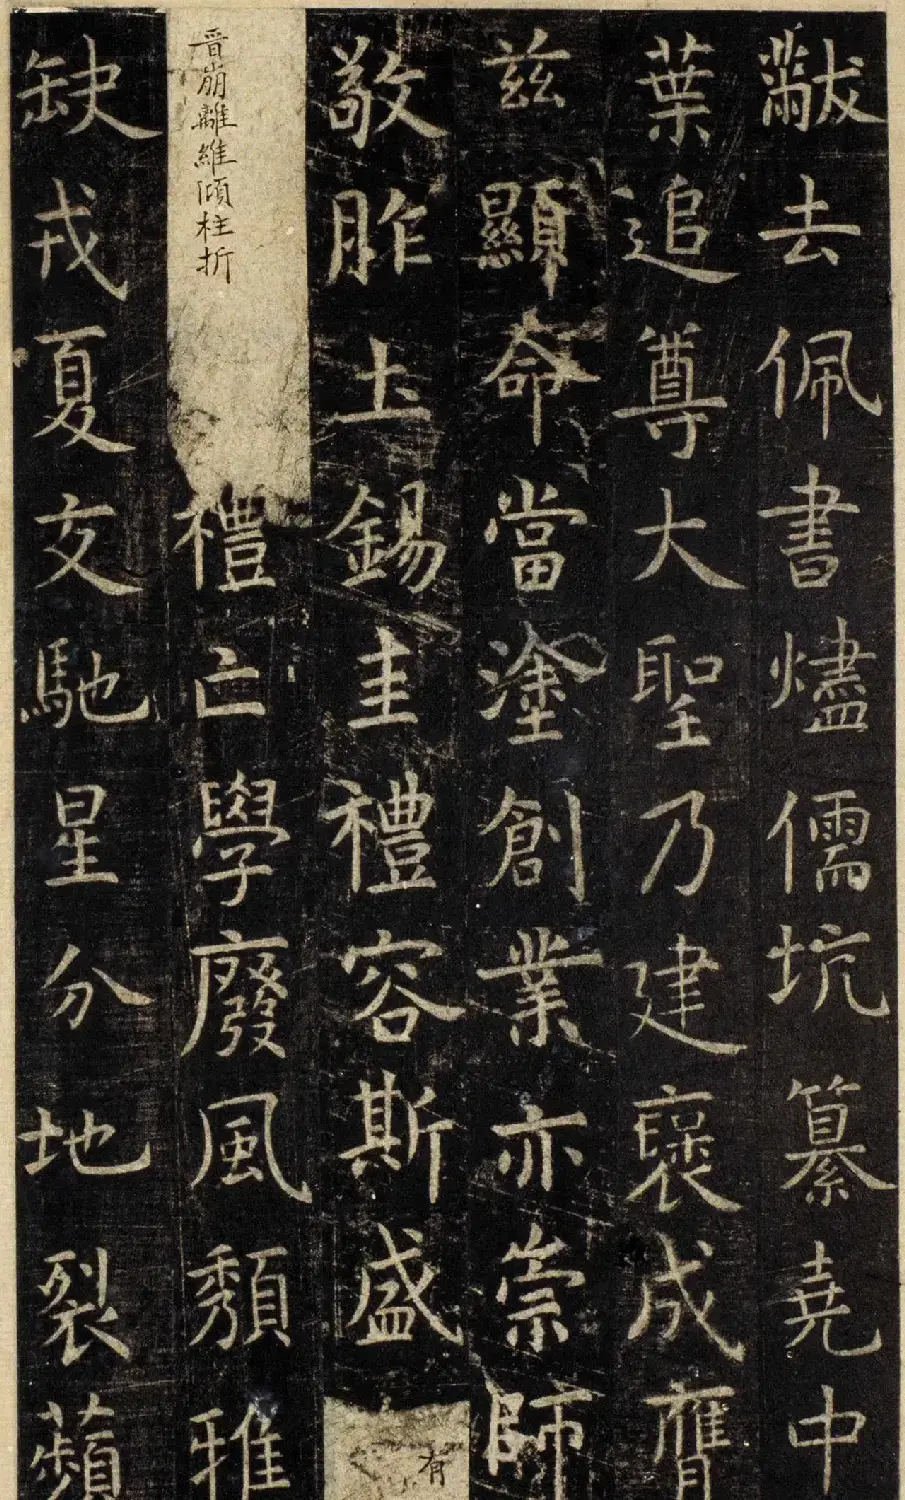 黻去佩書燼儒坑纂堯中
葉追尊大聖乃建褒成膺
兹顯命當塗創業亦崇師
敬胙土錫圭禮容斯盛有
晋崩離維傾柱折禮亡學廢風頹雅
缺戎夏交馳星分地裂蘋